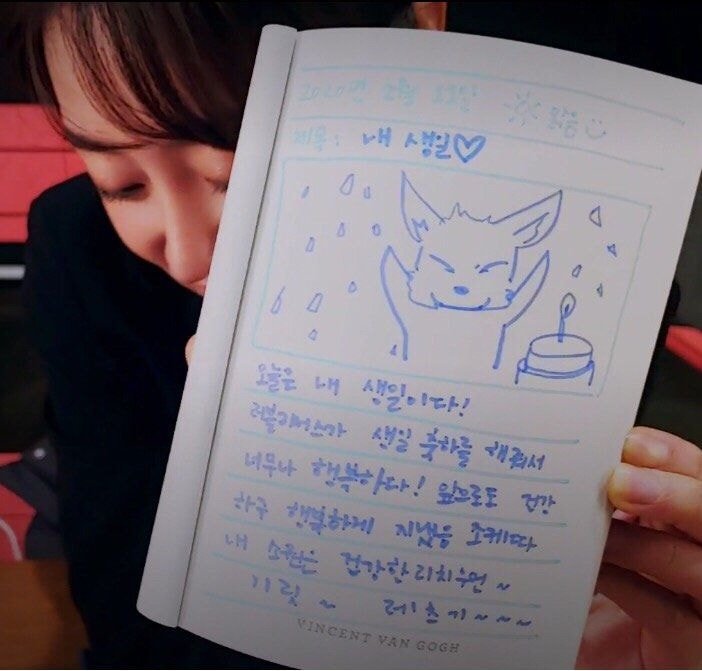 2020년 2월 22일 맑음
제목: 내 생일♡
오늘은 내 생일이다!
러블리너스가 생일 축하를 해줘서
너무나 행복하다! 앞으로도 건강
하구 행복하게 지냈음 조케따
내 소원은 건강한리치후원~
기릿~ 레츠기~~~
VINCENT VAN GOGH